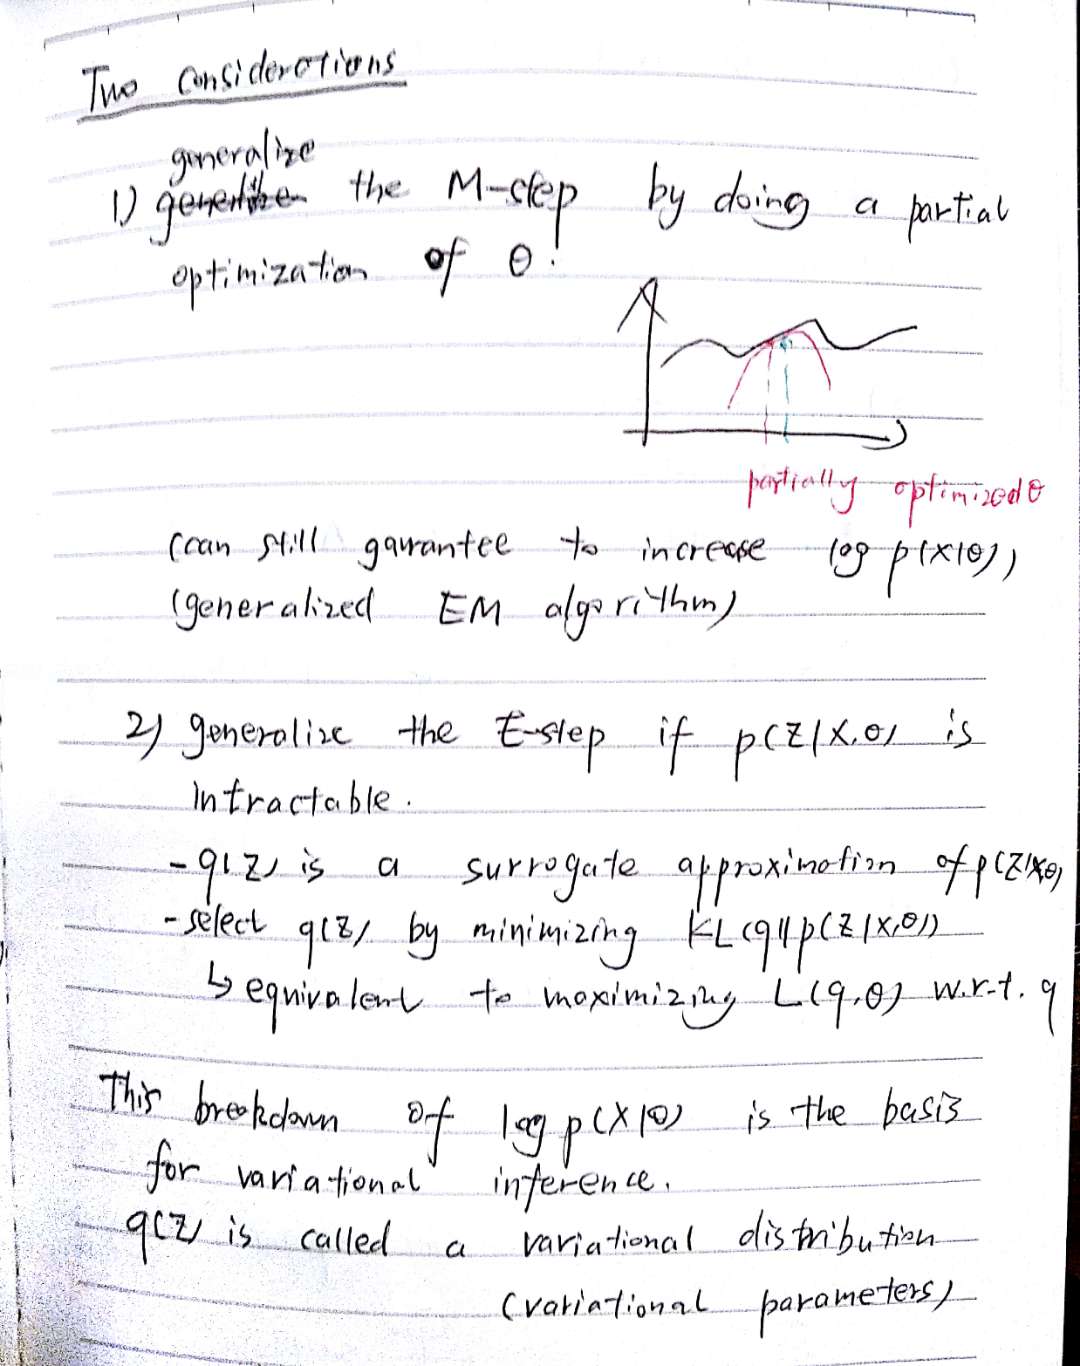 Two considerations
generalize
1) the M-step by doing a partial
optimization of θ.
partially optimized θ
(can still gaurantee to increase log p(X|θ))
(generalized EM algorithm)
2) generalize the E-step if p(Z|X,θ) is
intractable.
- q(Z) is a surrogate approximation of p(Z|X,θ)
- select q(Z) by minimizing KL(q||p(Z|X,θ))
↳ equivalent to maximizing L(q,θ) w.r.t. q
This breakdown of log p(X|θ) is the basis
for variational inference.
q(Z) is called a variational distribution
(variational parameters)